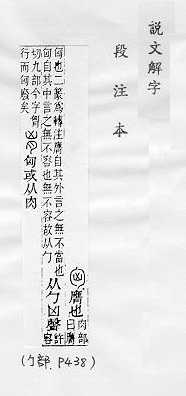 説文解字
段注本
匈膺也肉部
曰膺
匈也二篆爲轉注膺自其外言之無不當也
匈自其中言之無不容也無不容故从勹
从勹凶聲許
容
切九部今字胷
行而匈廢矣
胷匈或从肉
(勹部. P438)